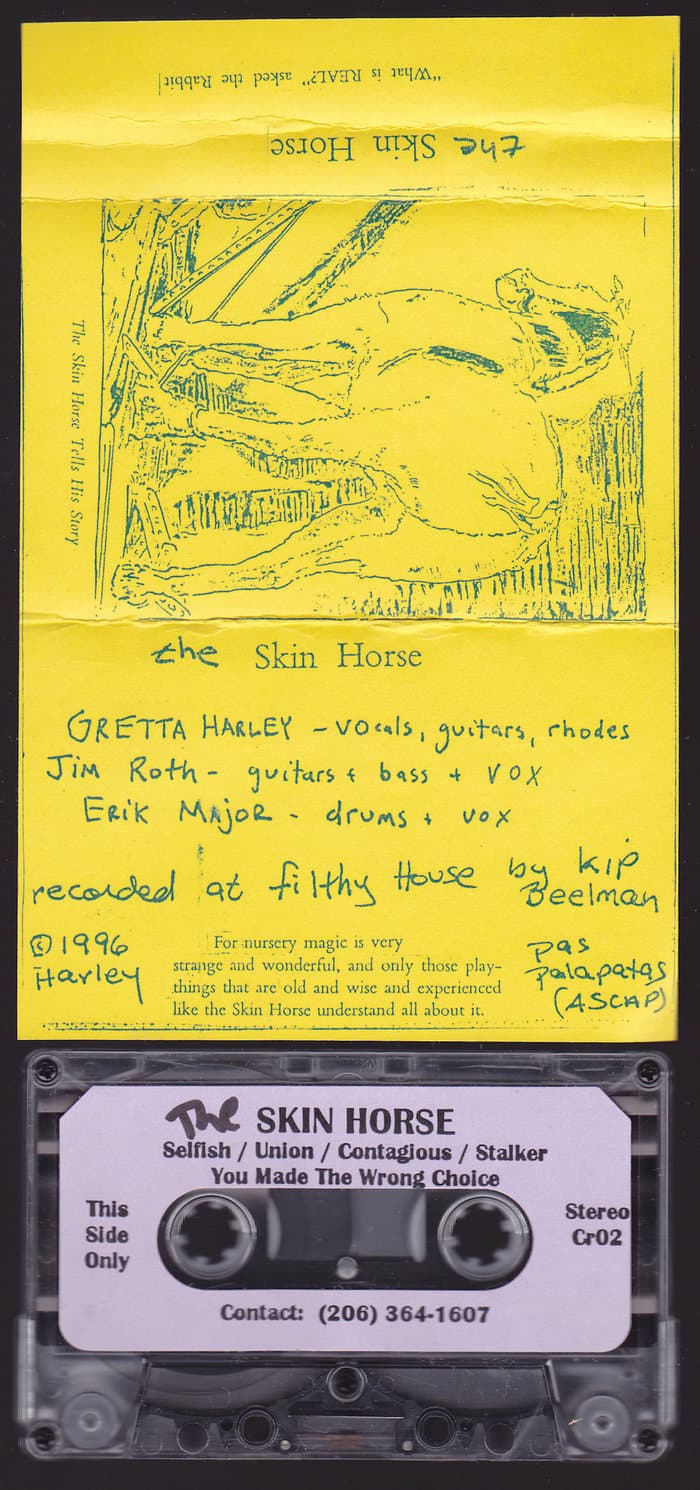 "What is REAL?" asked the Rabbit
the Skin Horse
The Skin Horse Tells His Story
the Skin Horse
GRETTA HARLEY - vocals, guitars, rhodes
Jim Roth - guitars + bass + vox
Erik Major - drums + vox
recorded at filthy House by Kip Beelman
© 1996
Harley
For nursery magic is very
strange and wonderful, and only those play-
things that are old and wise and experienced
like the Skin Horse understand all about it.
pas
palapatas
(ASCAP)
The SKIN HORSE
Selfish / Union / Contagious / Stalker
You Made The Wrong Choice
This
Side
Only
Stereo
CrO2
Contact: (206) 364-1607